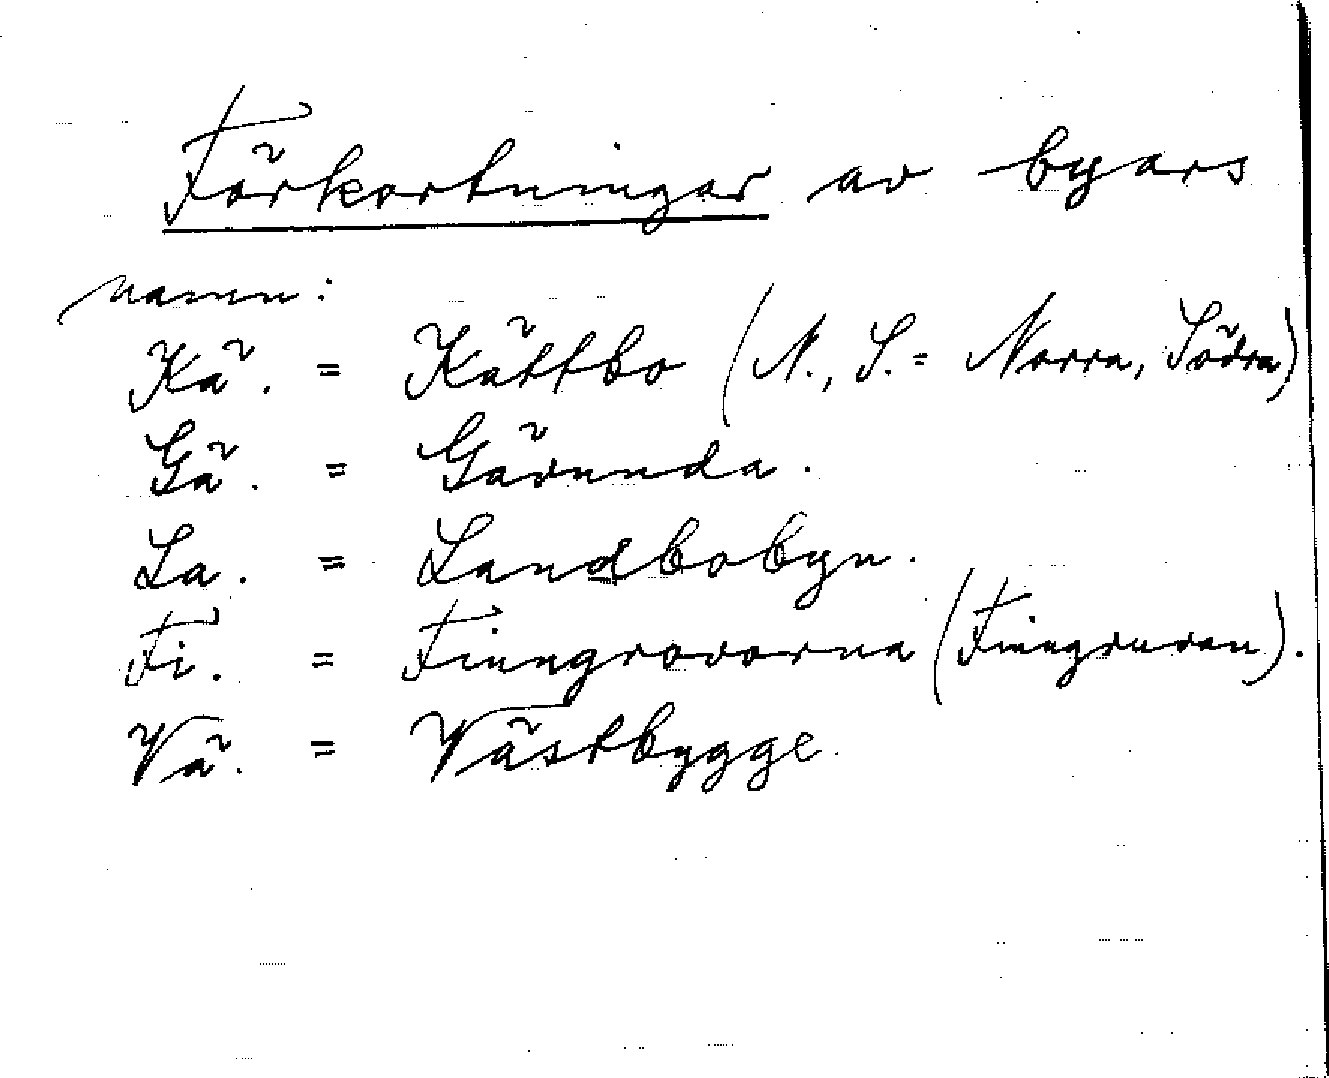 Förkortningar av byars
namn:
Kä. = Kättbo (N., S. = Norra, Södra)
Gä. = Gävunda.
La. = Landbobyn.
Fi. = Finngrovorna (Finngruvan).
Vä. = Västbygge.